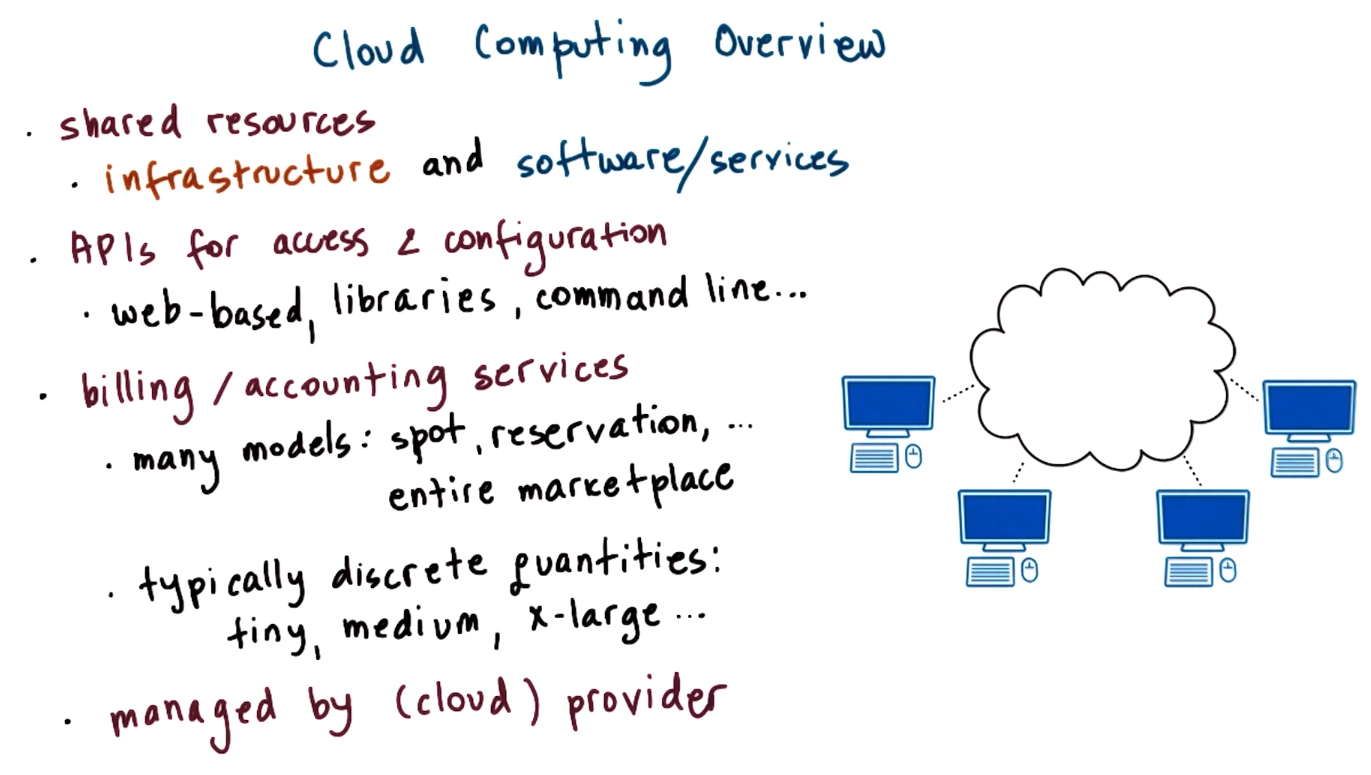 Cloud Computing Overview
· shared resources
· infrastructure and software/services
· APIs for access & configuration
· web-based, libraries, command line...
· billing / accounting services
· many models: spot, reservation, ...
entire marketplace
· typically discrete quantities:
tiny, medium, x-large ...
· managed by (cloud) provider